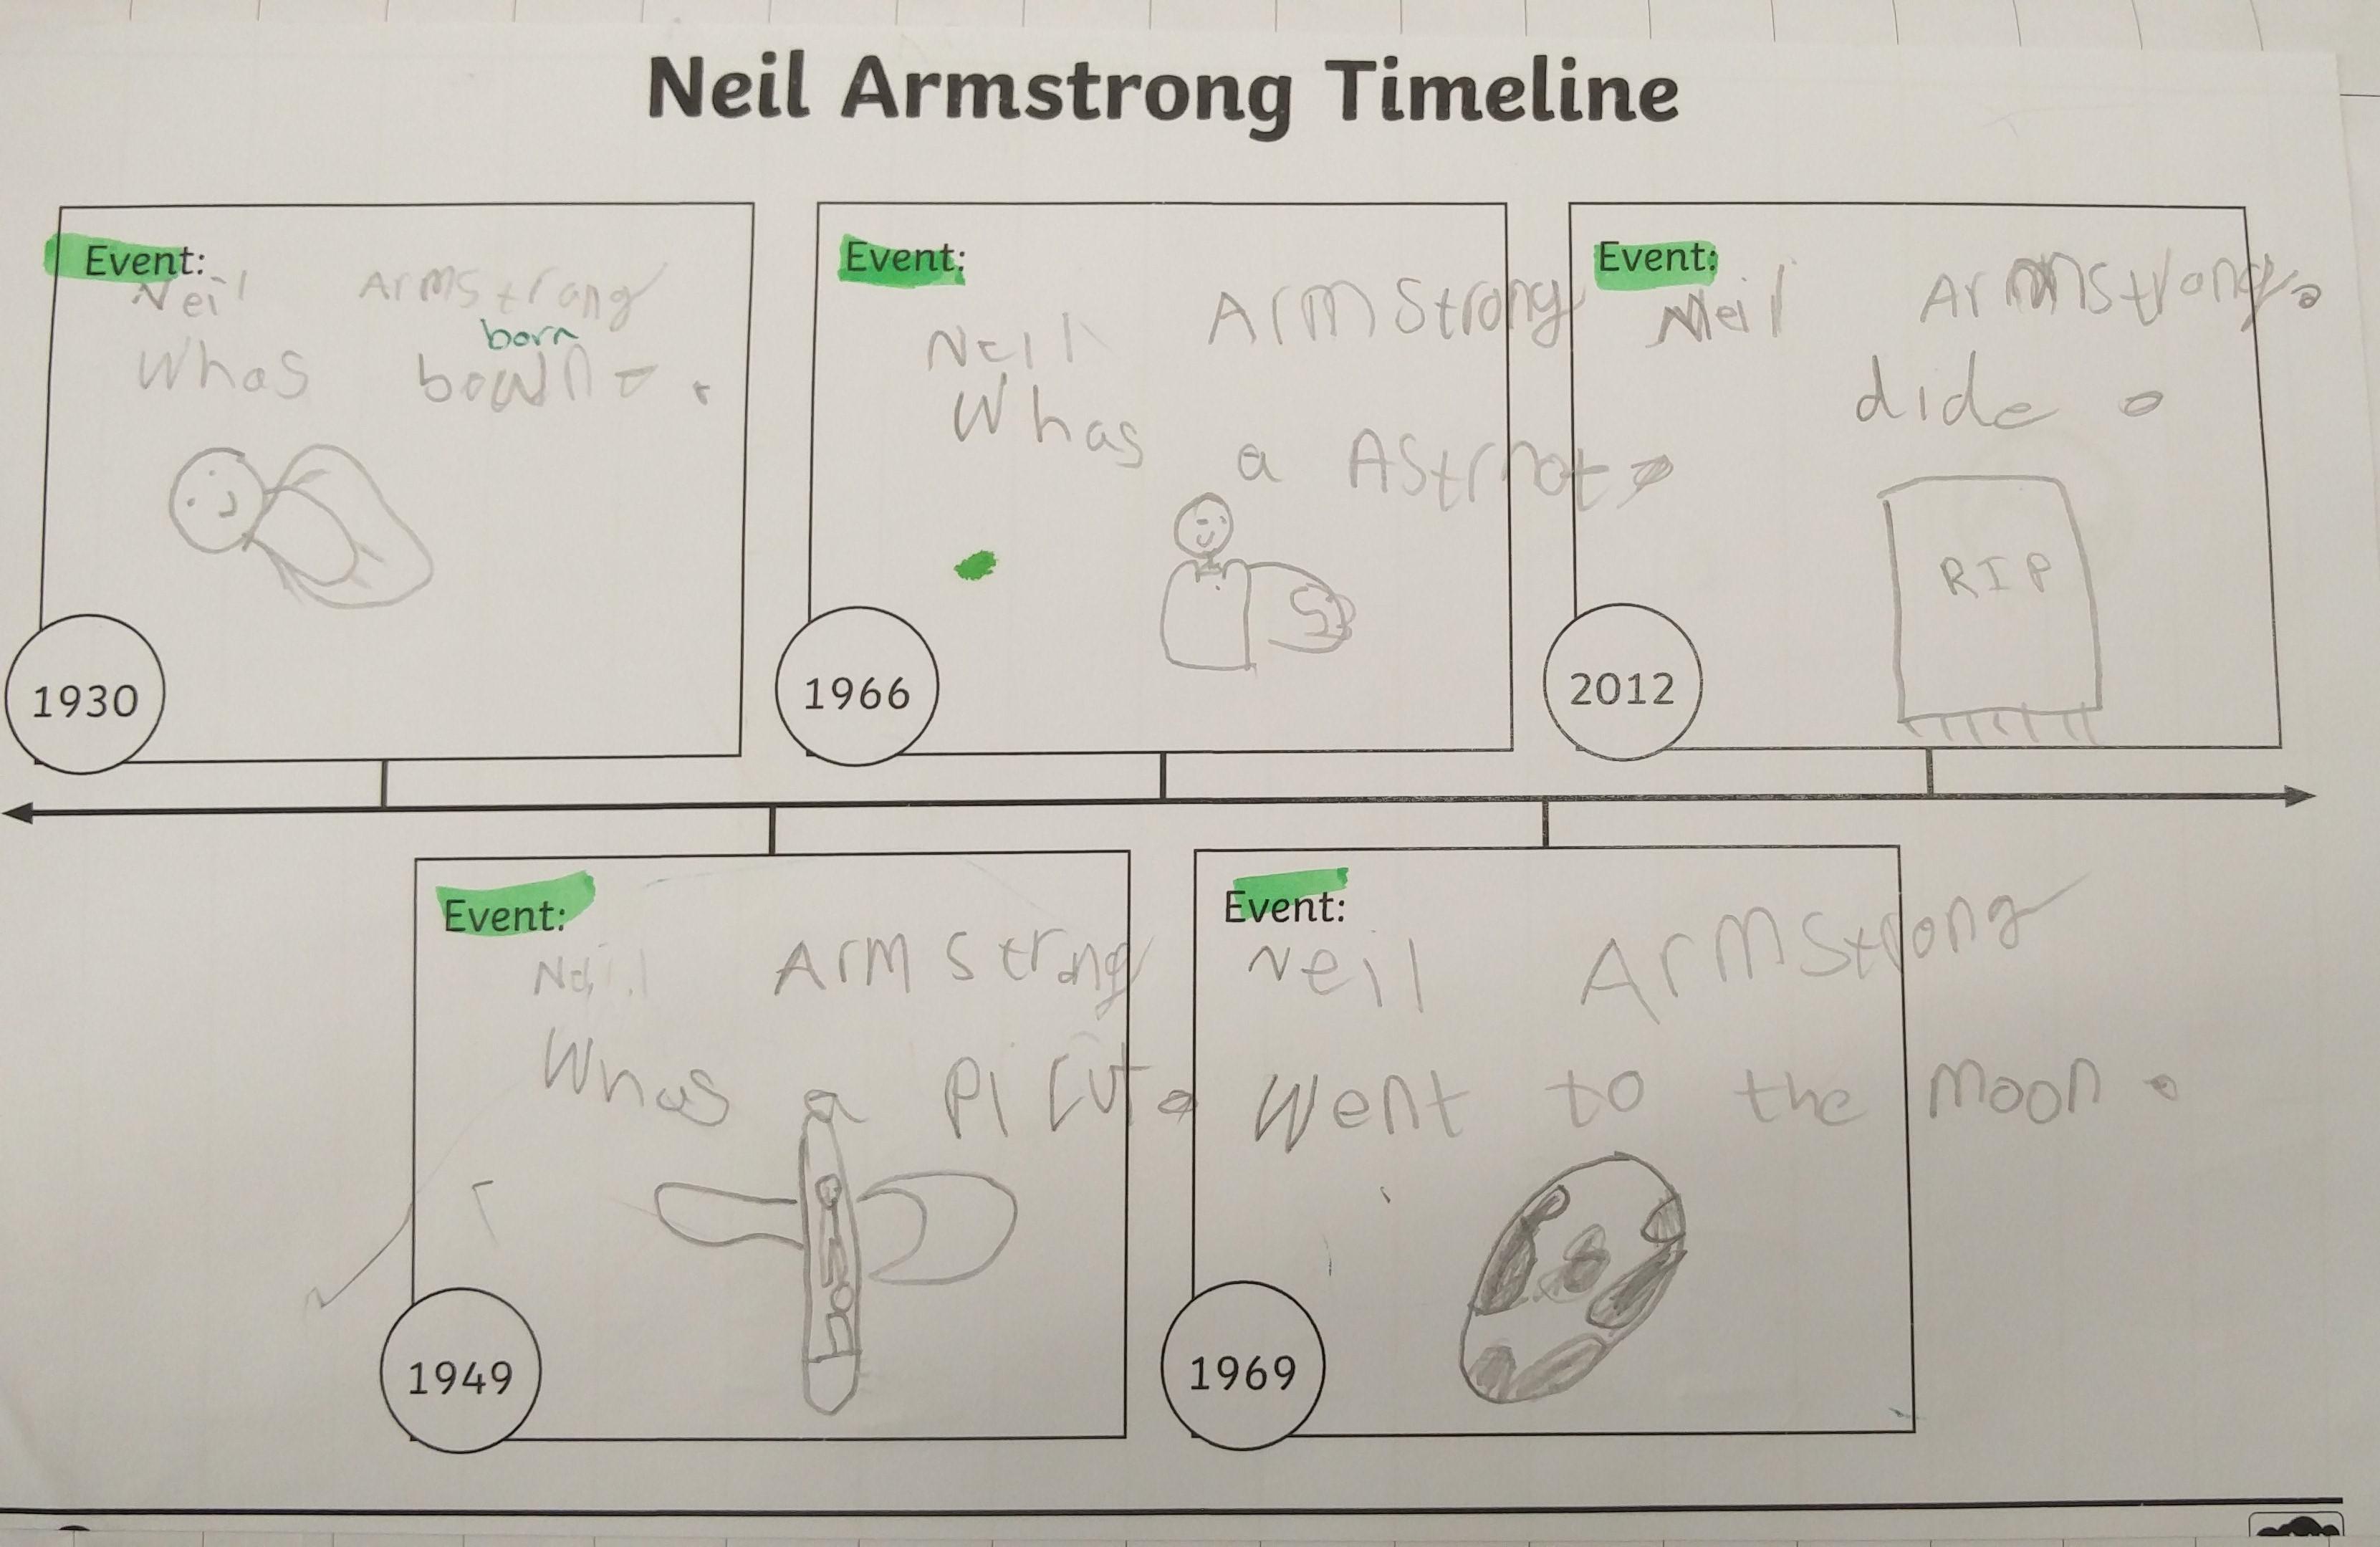 Neil Armstrong Timeline
Event:
Neil Armstrong
born
Whas bown.
1930
Event:
Neil Armstrong
Whas a Astrnot.
1966
Event:
Neil Armstrong.
dide.
RIP
2012
Event:
Neil Armstrong
Whas a
1949
Event:
Neil Armstrong
Went to the moon.
1969